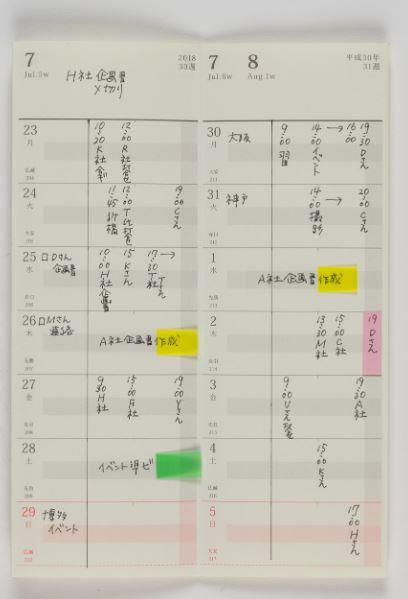 7
Jul.5w
2018
30週
H社 企画書
〆切り
23
月
仏滅
10:20 K社
12:00 R社
24
火
大安
11:45 新橋
12:00 T社
19:00 Cさん
25
水
赤口
□Dさん
企画書
10:00 H社
15:00 Kさん
17:30 T社 →
26
木
先勝
□Mさん
A社企画書作成
27
金
友引
9:30 H社
15:00 A社
19:00 Yさん
28
土
先負
イベント準ビ
29
日
仏滅
博多
イベント
7
Jul.5w
8
Aug.1w
平成30年
31週
30
月
大安
大阪
9:00
14:00 イベント
→ 16:00
19:30 Dさん
31
火
赤口
神戸
14:00 撮影 →
20:00 Cさん
1
水
先勝
A社企画書作成
2
木
友引
13:30 M社
15:00 C社
19 Dさん
3
金
先負
9:00 Uさん
19:30 A社
4
土
仏滅
15:00 Kさん
5
日
大安
17:00 Hさん